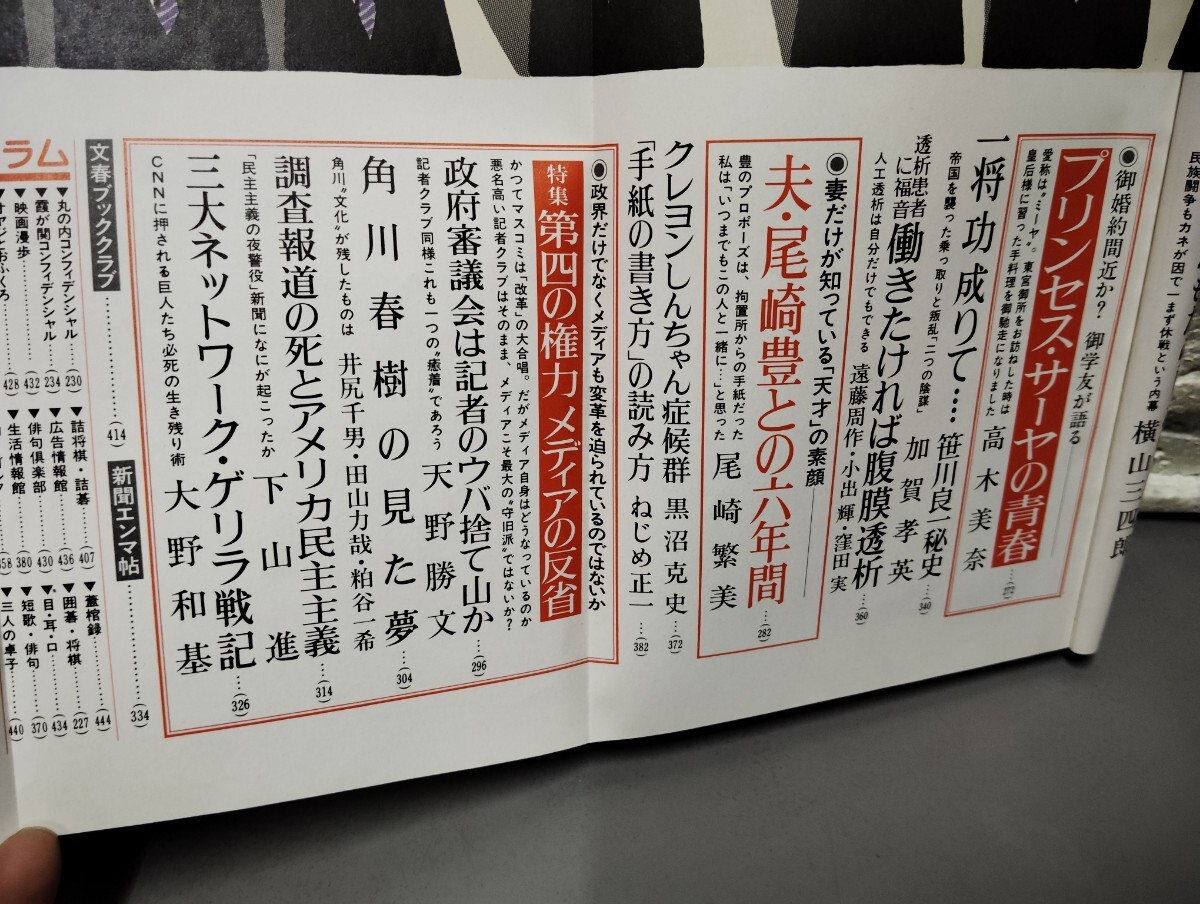 民族闘争もカネが因で一まず休戦という内幕
横山三四郎
◉御婚約間近か? 御学友が語る
プリンセス・サーヤの青春
愛称は〝ミーヤ〟。東宮御所をお訪ねした時は
皇后様に習った手料理を御馳走になりました
高木美奈
一将功成りて‥‥笹川良一秘史
帝国を襲った乗っ取りと叛乱「二つの陰謀」
加賀孝英
(340)
透析患者
に福音
働きたければ腹膜透析
(360)
人工透析は自分だけでもできる
遠藤周作・小出輝・窪田実
◉妻だけが知っている「天才」の素顔
夫・尾崎豊との六年間
(282)
豊のプロポーズは、拘置所からの手紙だった
私は「いつまでもこの人と一緒に…」と思った
尾崎繁美
クレヨンしんちゃん症候群 黒沼克史
(372)
「手紙の書き方」の読み方 ねじめ正一
(382)
◉政界だけでなくメディアも変革を迫られているのではないか
特集 第四の権力 メディアの反省
かつてマスコミは「改革」の大合唱。だがメディア自身はどうなっているのか
悪名高い記者クラブはそのまま、メディアこそ最大の〝守旧派〟ではないか?
政府審議会は記者のウバ捨て山か
(296)
記者クラブ同様これも一つの〝癒着〟であろう
天野勝文
角川春樹の見た夢
(304)
角川〝文化〟が残したものは
井尻千男・田山力哉・粕谷一希
調査報道の死とアメリカ民主主義
(314)
「民主主義の夜警役」新聞になにが起こったか
下山進
三大ネットワーク・ゲリラ戦記
(326)
CNNに押される巨人たち必死の生き残り術
大野和基
文春ブッククラブ
(414)
新聞エンマ帖
(334)
ラム
▼丸の内コンフィデンシャル
(230)
▼詰将棋・詰碁
(407)
▼蓋棺録
(444)
▼霞が関コンフィデンシャル
(234)
▼広告情報館
(436)
▼囲碁・将棋
(227)
▼映画漫歩
(432)
▼俳句倶楽部
(430)
▼目・耳・口
(434)
▼オヤジとおふくろ
(428)
▼生活情報館
(380)
▼短歌・俳句
(370)
▼三人の卓子
(440)